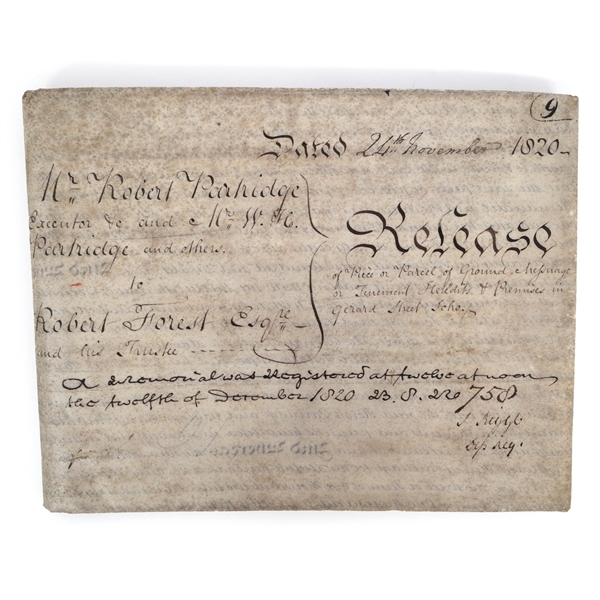 9
Dated 24th November 1820
Mr. Robert Partridge
Executor &c and Mr. W. H.
Partridge and others.
to
Robert Forest Esqre
and his Trustee
Release
of a Piece or Parcel of Ground Messuage
or Tenement Heredits & Premises in
Gerard Street Soho
A Memorial was Registered at twelve at noon
the twelfth of December 1820 B. 8. No 758
Dep Reg.